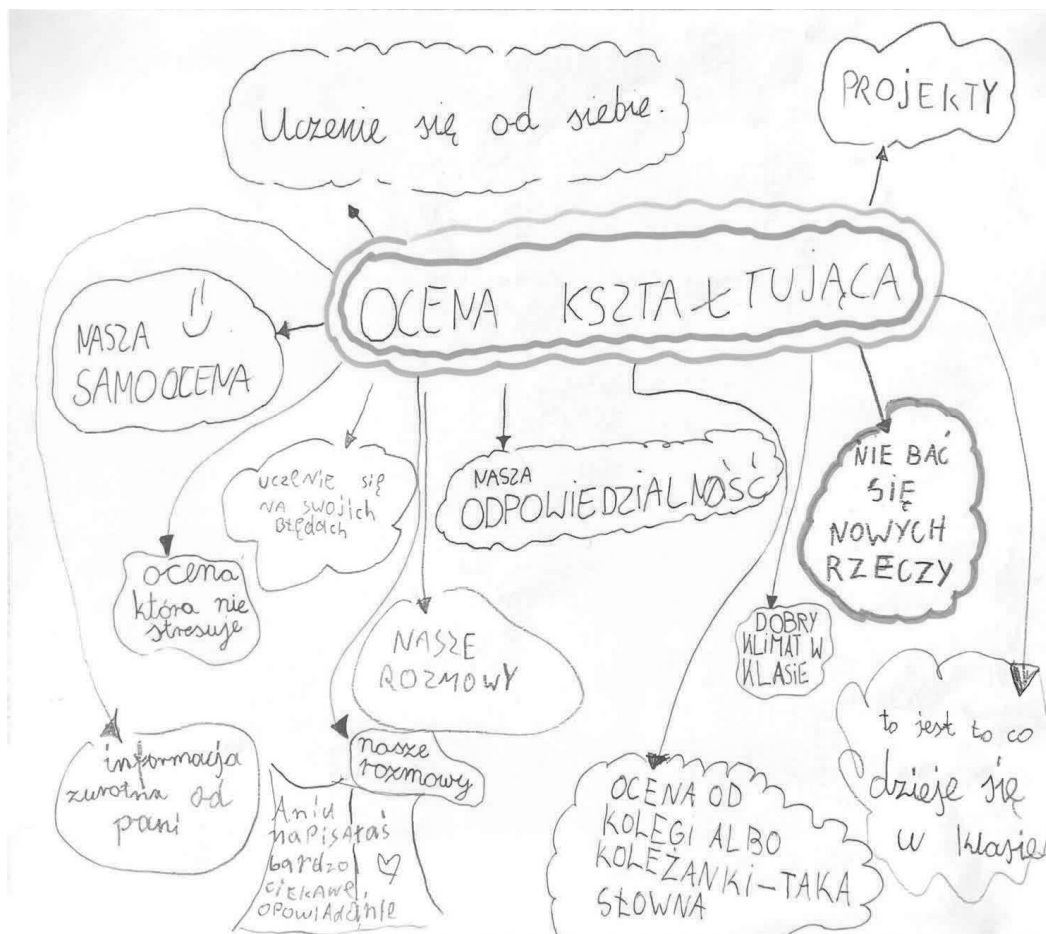 Uczenie się od siebie.
PROJEKTY
OCENA KSZTAŁTUJĄCA
NASZA
SAMOOCENA
uczeNie się
NA swojich
BŁĘDACH
NASZA
ODPOWIEDZIALNOŚĆ
NIE BAĆ
SIĘ
NOWYCH
RZECZY
ocena
która nie
stresuje
NASZE
ROZMOWY
DOBRY
KLIMAT W
KLASIE
informacja
zwrotna od
pani
nasze
rozmowy
Aniu
napisałaś
bardzo
ciekawe
opowiadanie
OCENA OD
KOLEGI ALBO
KOLEŻANKI-TAKA
SŁOWNA
to jest to co
dzieje się
w klasie